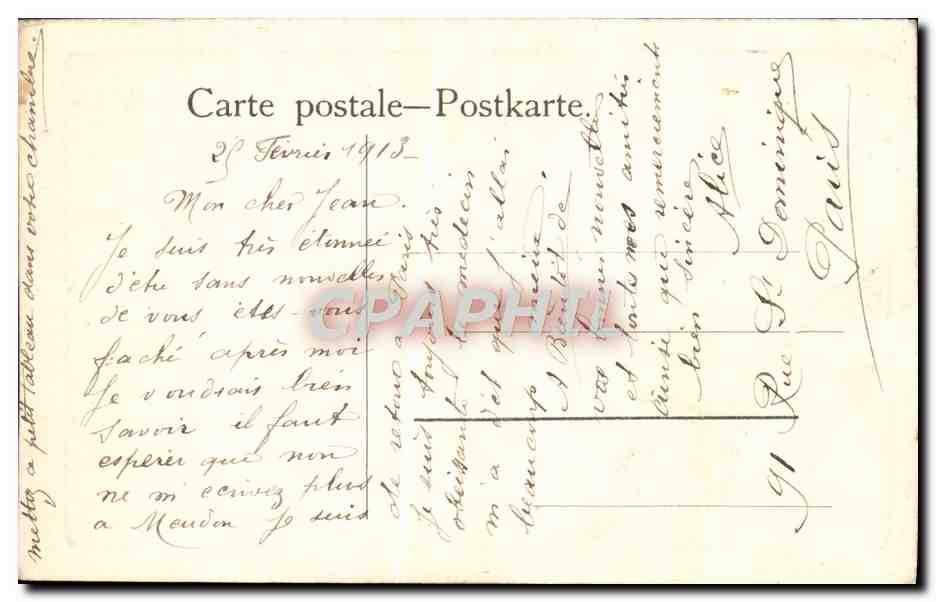 Carte postale—Postkarte.
25 Février 1913-
Mon cher Jean.
Je suis très étonnée
d'être sans nouvelles
de vous êtes-vous
faché après moi
Je voudrais bien
savoir il faut
esperer que non
ne m'ecrivez plus
a Meudon Je suis
de retour a Paris
Je suis toujours très
obeissante le medecin
m'a dit que j'allai
beaucoup mieux
A Bientôt de
vos bonnes nouvelles
et toutes mes amitiés
ainsi que remerciements
bien sincère
Alice
91 Rue St Dominique
Paris
mettez a petit tableau dans votre chambre.
CPAPHIL